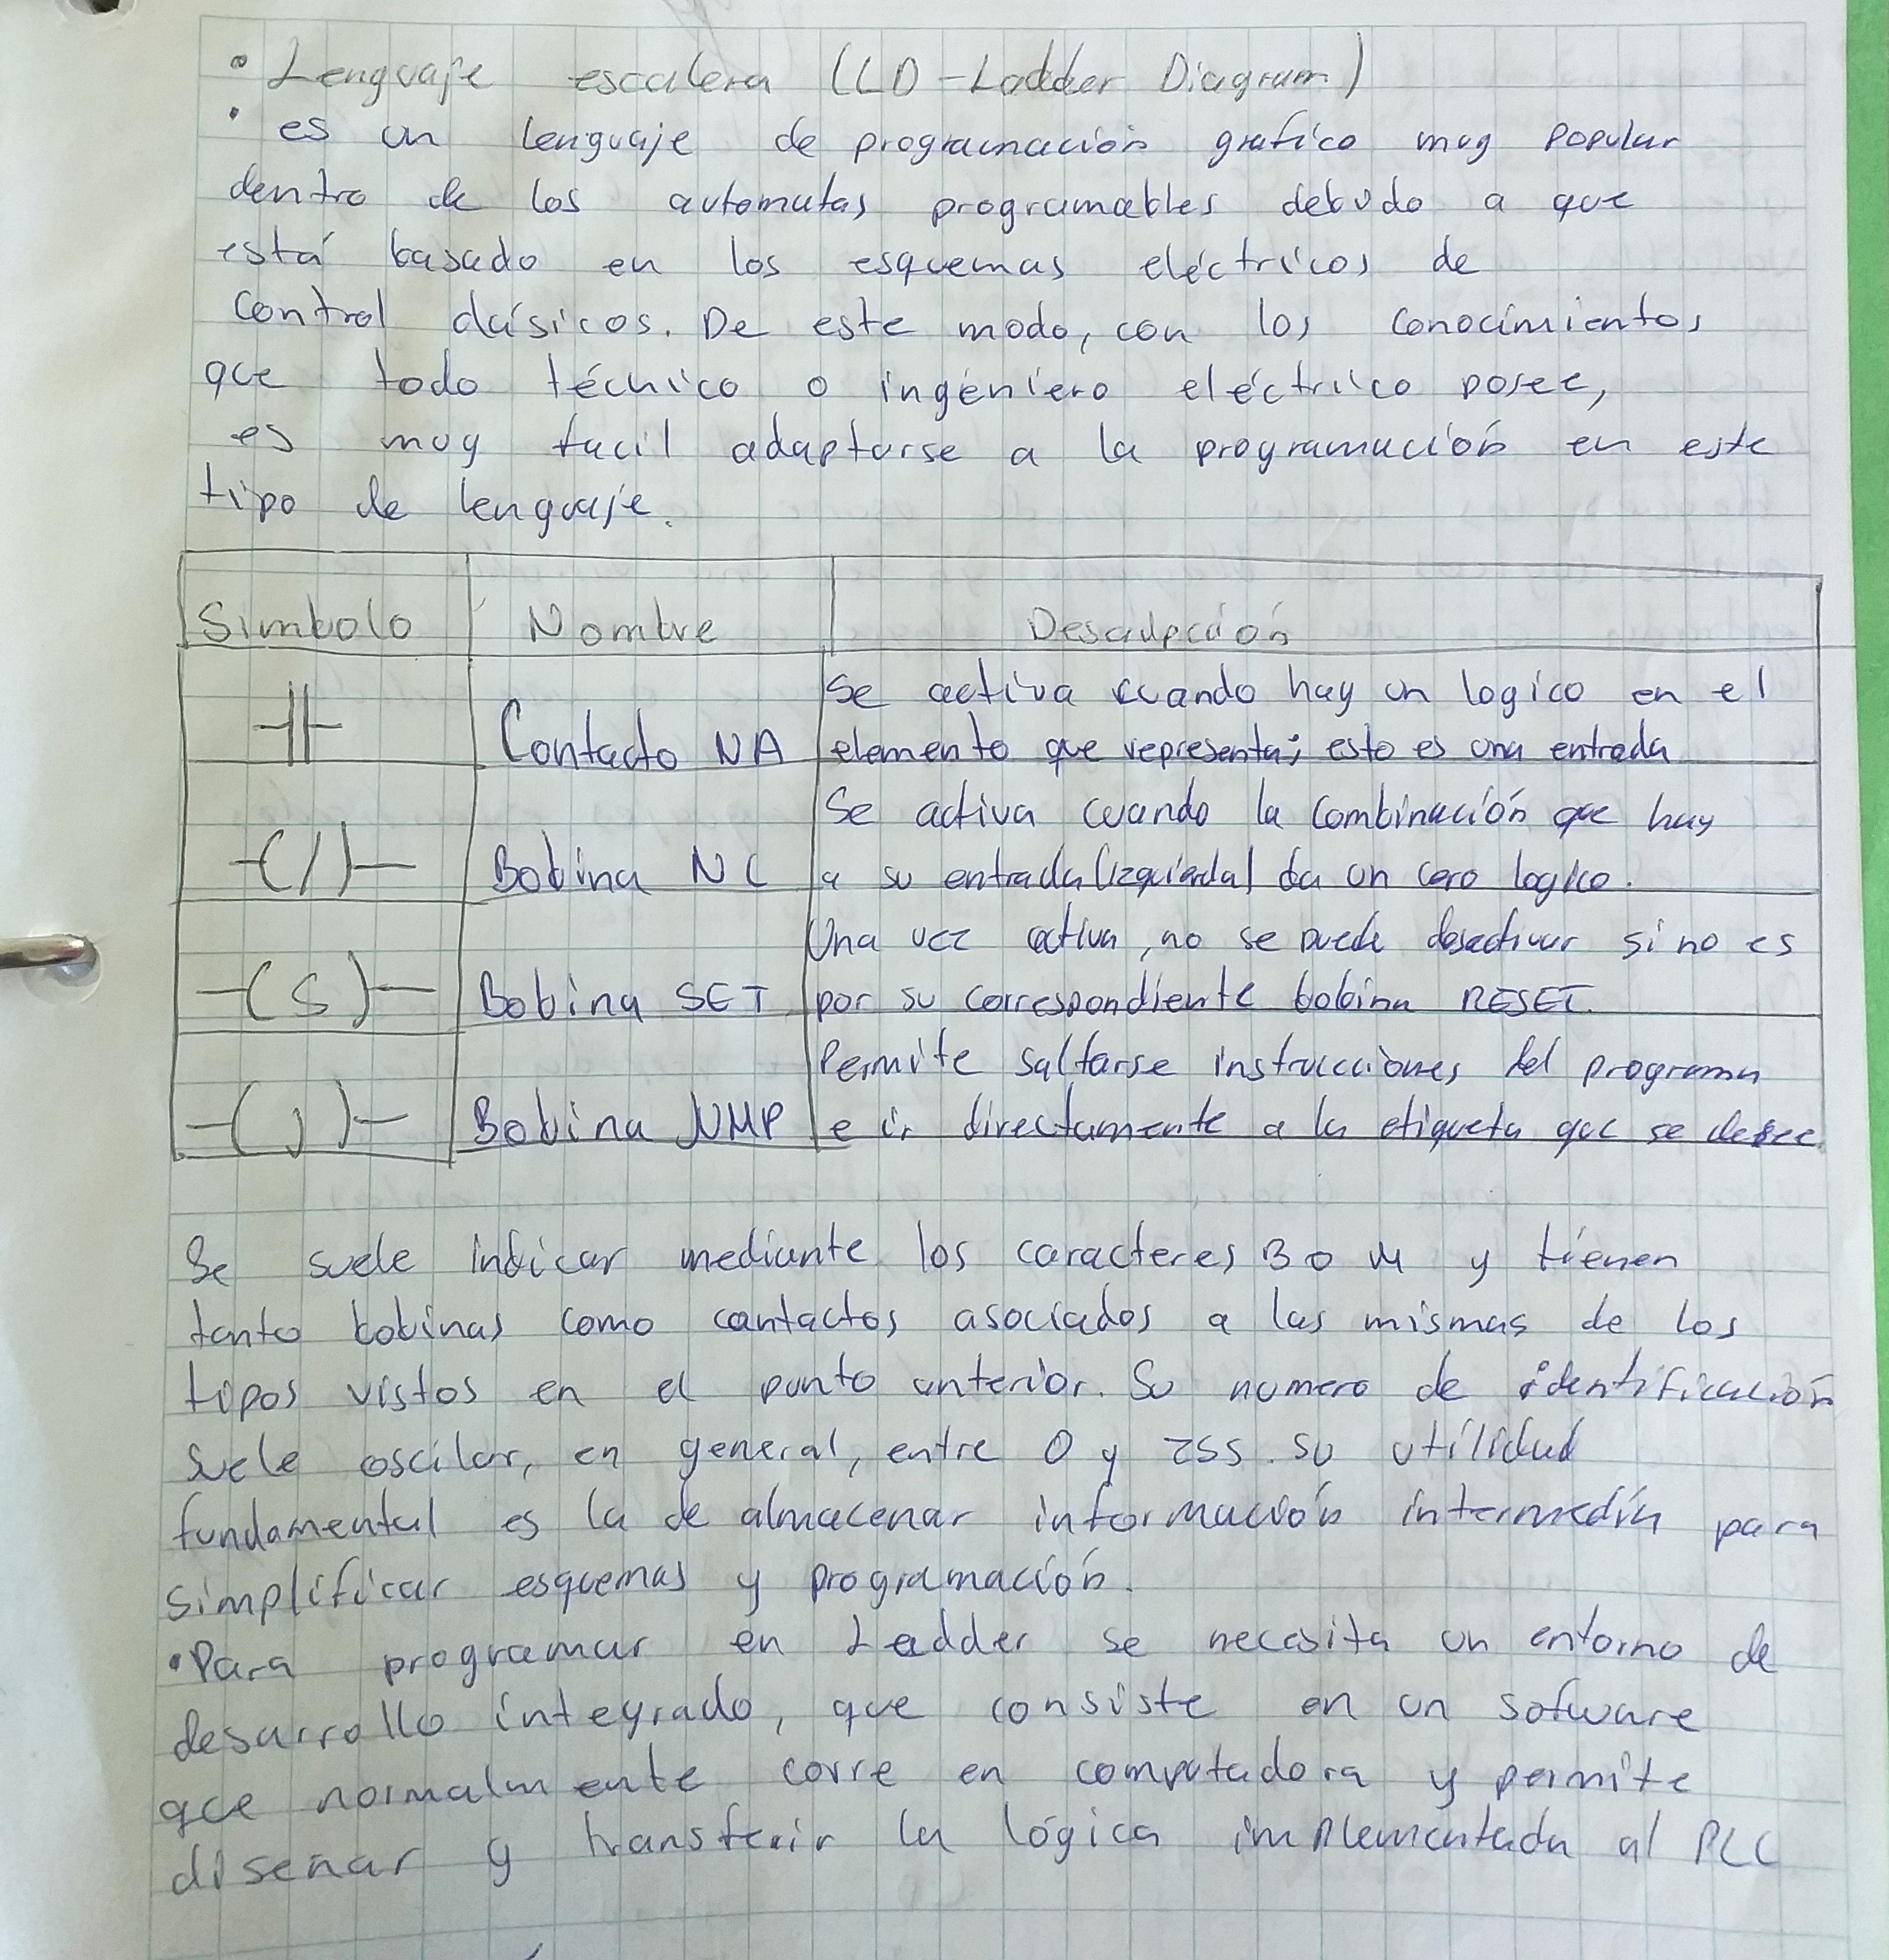 • Lenguaje escalera (LD-Ladder Diagram)
• es un lenguaje de programación grafico muy popular
dentro de los automatas programables debido a que
está basado en los esquemas eléctricos de
control clásicos. De este modo, con los conocimientos
que todo técnico o ingéniero eléctrico posee,
es muy facil adaptarse a la programación en este
tipo de lenguaje.
Simbolo Nombre Descripción
Se activa cuando hay un logico en el
Contacto NA elemento que representa; esto es una entrada
Se activa cuando la combinación que hay
-(/)- Bobina NC a su entrada (izquierda) da un cero logico.
Una vez activa, no se puede desactivar si no es
-(S)- Bobina SET por su correspondiente bobina RESET.
Permite saltarse instrucciones del programa
-(J)- Bobina JUMP e ir directamente a la etiqueta que se desee
Se suele indicar mediante los caracteres B o M y tienen
tanto bobinas como contactos asociados a las mismas de los
tipos vistos en el punto anterior. Su numero de identificación
suele oscilar, en general, entre 0 y 255. su utilidad
fundamental es la de almacenar información intermedia para
simplificar esquemas y programación.
•Para programar en Ladder se necesita un entorno de
desarrollo integrado, que consiste en un sofware
que normalmente corre en computadora y permite
diseñar y transferir la lógica implementada al PLC